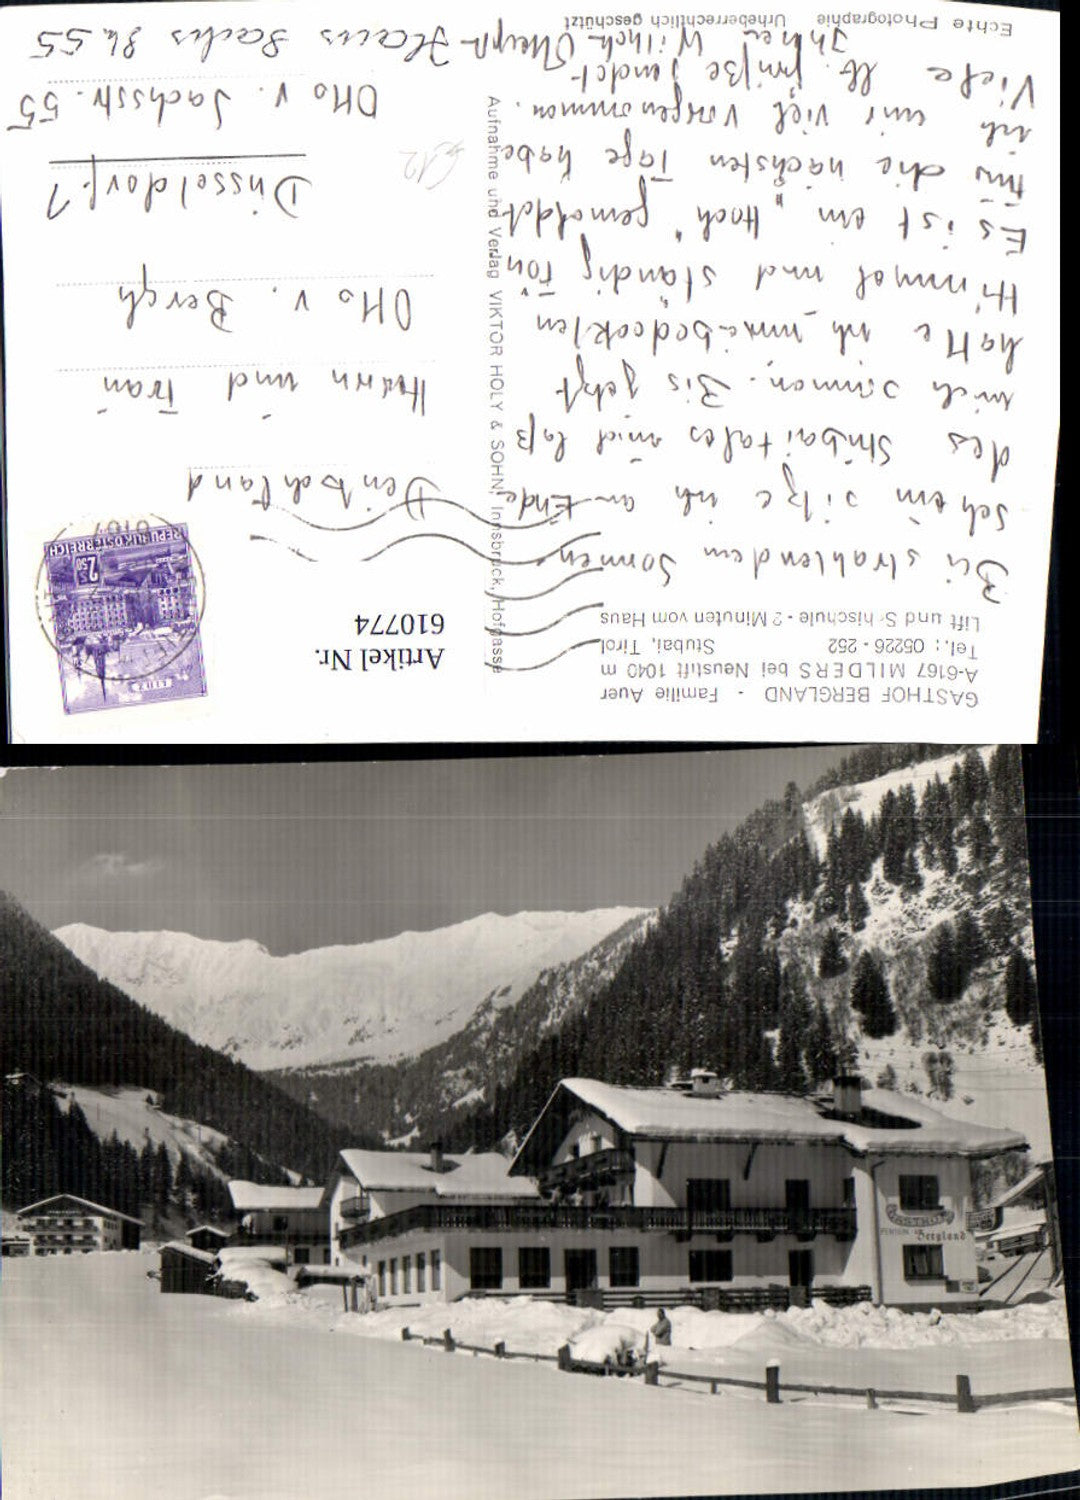 GASTHOF BERGLAND - Familie Auer
A-6167 MILDERS bei Neustift 1040 m
Tel.: 05226 - 252 Stubai, Tirol
Lift und Schischule - 2 Minuten vom Haus
Bei strahlendem Sonnen
schein sitze ich am Ende
des Stubaitales und laß
mich sonnen. Bis jetzt
hatte ich unbedeckten
Himmel und ständig Fön
Es ist ein "Hoch" gemeldet
für die nächsten Tage habe
ich mir viel vorgenommen.
Viele lb. Grüße sendet
Ihnen
Echte Photographie Urheberrechtlich geschützt
Aufnahme und Verlag VIKTOR HOLY & SOHN, Innsbruck, Hofgasse
Artikel Nr.
610774
REPUBLIK ÖSTERREICH
S 2.50
LINZ
6167
Deutschland
Herrn und Frau
Otto v. Bergh
Düsseldorf-1
Otto v. Sachsstr. 55
Haus Sachs Str. 55
GASTHOF
PENSION
Bergland